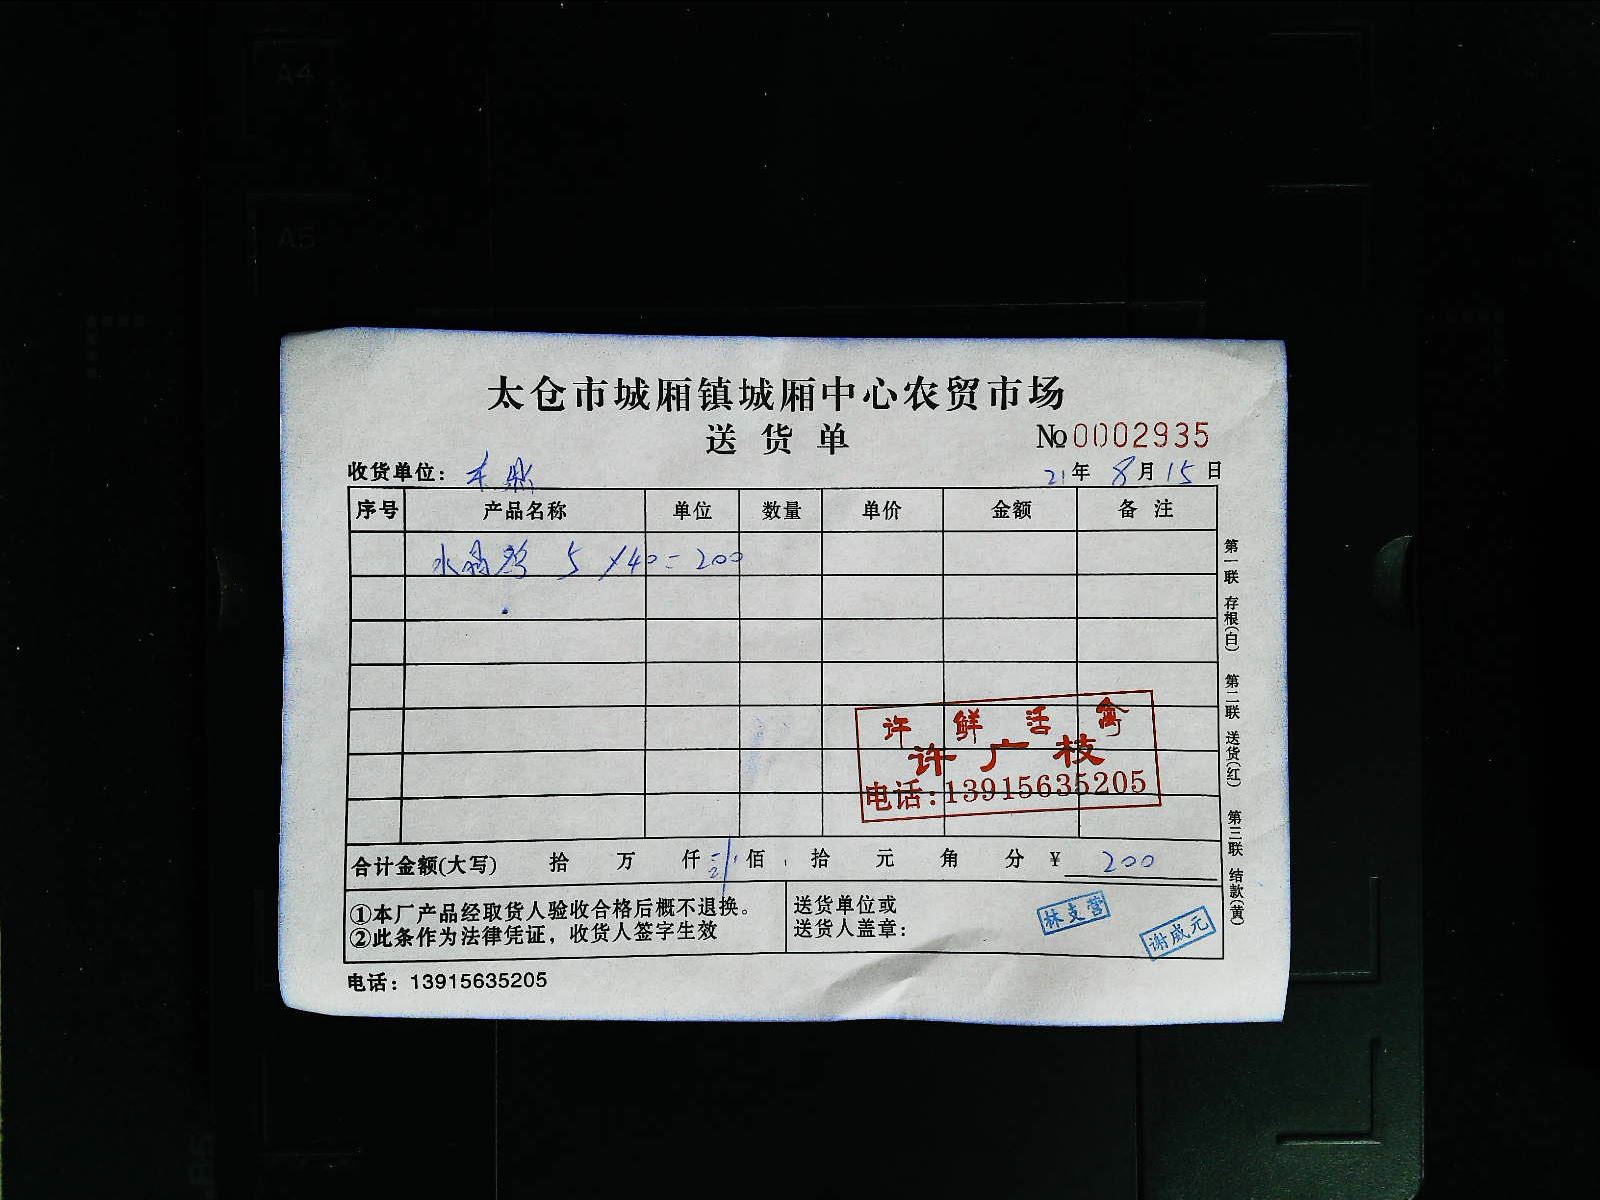 A4
A5
太仓市城厢镇城厢中心农贸市场
送货单 №0002935
收货单位： 21年 8月15日
序号 产品名称 单位 数量 单价 金额 备注
水晶鸡 5×40=200
许 鲜 活 禽
许广枝
电话：13915635205
合计金额(大写) 拾 万 仟 佰 拾 元 角 分 ¥ 200
①本厂产品经取货人验收合格后概不退换。
②此条作为法律凭证，收货人签字生效
送货单位或
送货人盖章：
林支营
谢威元
电话：13915635205
第一联 存根(白) 第二联 送货(红) 第三联 结款(黄)